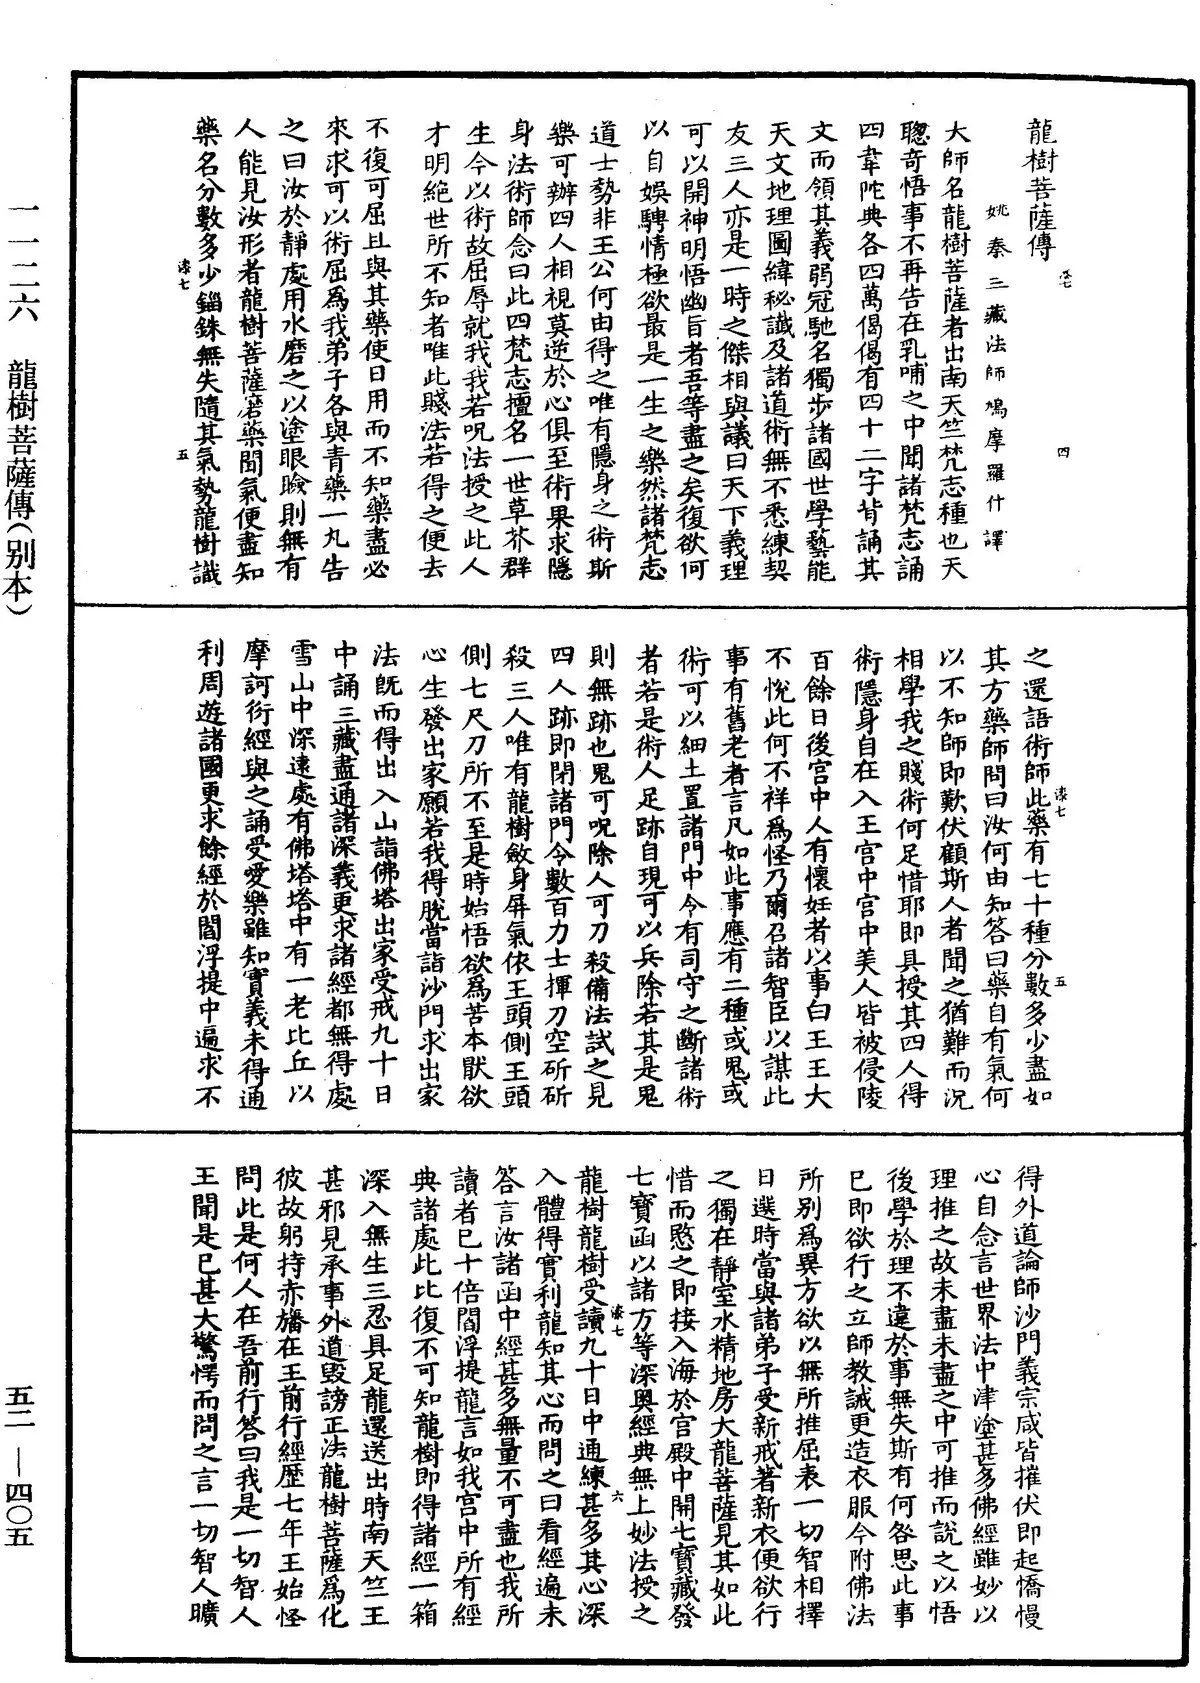 龍樹菩薩傳
四
姚秦三藏法師鳩摩羅什譯
大師名龍樹菩薩者出南天竺梵志種也天
聰奇悟事不再告在乳哺之中聞諸梵志誦
四韋陀典各四萬偈偈有四十二字背誦其
文而領其義弱冠馳名獨步諸國世學藝能
天文地理圖緯秘讖及諸道術無不悉練契
友三人亦是一時之傑相與議曰天下義理
可以開神明悟幽旨者吾等盡之矣復欲何
以自娛騁情極欲最是一生之樂然諸梵志
道士勢非王公何由得之唯有隱身之術斯
樂可辦四人相視莫逆於心俱至術果求隱
身法術師念曰此四梵志擅名一世草芥群
生今以術故屈辱就我我若呪法授之此人
才明絕世所不知者唯此賤法若得之便去
不復可屈且與其藥使日用而不知藥盡必
來求可以術屈為我弟子各與青藥一丸告
之曰汝於靜處用水磨之以塗眼瞼則無有
人能見汝形者龍樹菩薩磨藥聞氣便盡知
藥名分數多少錙銖無失隨其氣勢龍樹識
漆七
五
之還語術師此藥有七十種分數多少盡如
漆七
五
其方藥師問曰汝何由知答曰藥自有氣何
以不知師即歎伏顧斯人者聞之猶難而況
相學我之賤術何足惜耶即具授其四人得
術隱身自在入王宮中宮中美人皆被侵陵
百餘日後宮中人有懷妊者以事白王王大
不悅此何不祥為怪乃爾召諸智臣以謀此
事有舊老者言凡如此事應有二種或鬼或
術可以細土置諸門中令有司守之斷諸術
者若是術人足跡自現可以兵除若其是鬼
則無跡也鬼可呪除人可刀殺備法試之見
四人跡即閉諸門令數百力士揮刀空斫斫
殺三人唯有龍樹斂身屏氣依王頭側王頭
側七尺刀所不至是時始悟欲為苦本厭欲
心生發出家願若我得脫當詣沙門求出家
法既而得出入山詣佛塔出家受戒九十日
中誦三藏盡通諸深義更求諸經都無得處
雪山中深遠處有佛塔塔中有一老比丘以
摩訶衍經與之誦受愛樂雖知實義未得通
利周遊諸國更求餘經於閻浮提中遍求不
得外道論師沙門義宗咸皆摧伏即起憍慢
心自念言世界法中津塗甚多佛經雖妙以
理推之故未盡未盡之中可推而說之以悟
後學於理不違於事無失斯有何咎思此事
已即欲行之立師教誡更造衣服今附佛法
所別為異方欲以無所推屈表一切智相擇
日選時當與諸弟子受新戒著新衣便欲行
之獨在靜室水精地房大龍菩薩見其如此
惜而愍之即接入海於宮殿中開七寶藏發
七寶函以諸方等深奧經典無上妙法授之
龍樹龍樹受讀九十日中通練甚多其心深
漆七
六
入體得實利龍知其心而問之曰看經遍未
答言汝諸函中經甚多無量不可盡也我所
讀者已十倍閻浮提龍言如我宮中所有經
典諸處此比復不可知龍樹即得諸經一箱
深入無生三忍具足龍還送出時南天竺王
甚邪見承事外道毀謗正法龍樹菩薩為化
彼故躬持赤旛在王前行經歷七年王始怪
問此是何人在吾前行答曰我是一切智人
王聞是已甚大驚愕而問之言一切智人曠
一一二六　龍樹菩薩傳(別本)
五二—四〇五